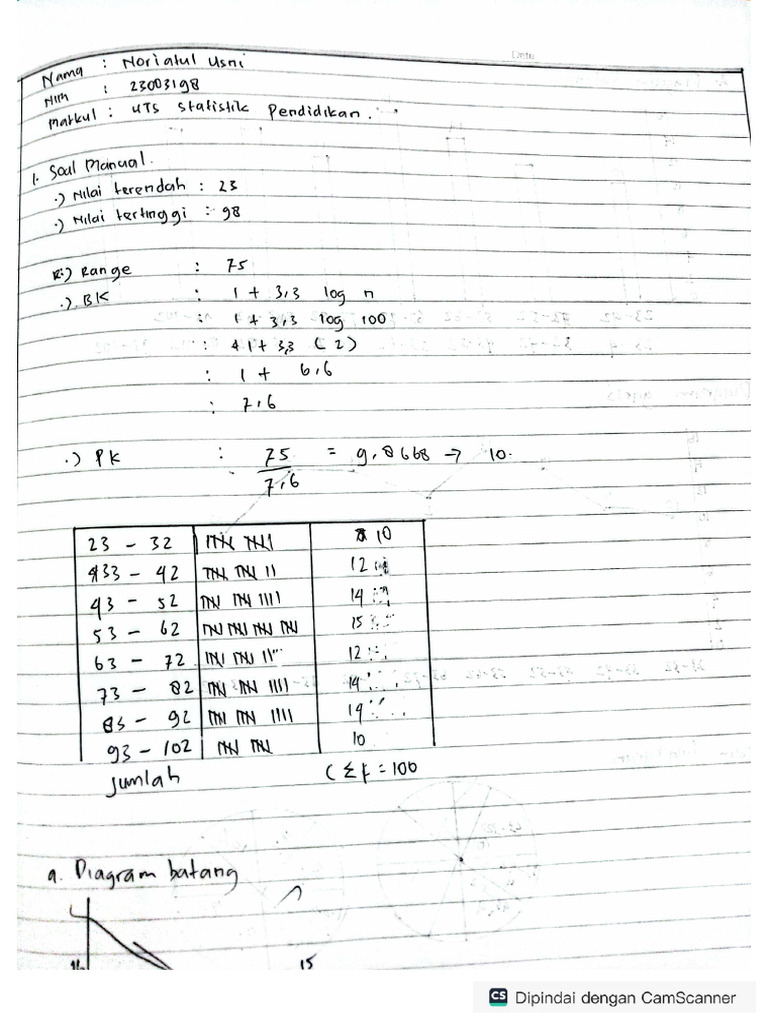 Date
Nama : Noriatul Usni
NIM : 23003198
Matkul : UTS Statistik Pendidikan.
1. Soal Manual.
.) Nilai terendah : 23
.) Nilai tertinggi : 98
.) Range : 75
.) BK : 1 + 3,3 log n
: 1 + 3,3 log 100
: 1 + 3,3 (2)
: 1 + 6,6
: 7,6
.) PK : 75 = 9,8668 → 10.
7,6
23 - 32 10
33 - 42 12
43 - 52 14
53 - 62 15
63 - 72 12
73 - 82 14
83 - 92 14
93 - 102 10
Jumlah (Σf = 100
a. Diagram batang
16 15
CS Dipindai dengan CamScanner